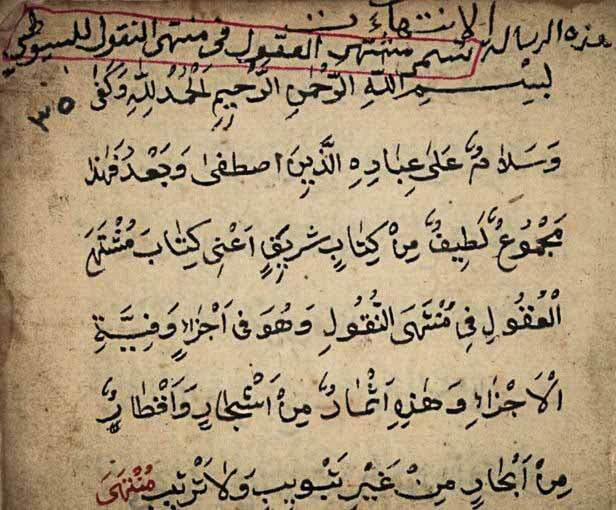 الانتهاءت
هذه الرسالة تسمى مشتهى العقول فى منتهى النقول للسيوطي
بِسْمِ اللّٰهِ الرَّحْمٰنِ الرَّحِيمِ اَلْحَمْدُ لِلّٰهِ وَكَفٰى
٣٥
وَسَلَامٌ عَلٰى عِبَادِهِ الَّذِينَ اصطفٰى وَبَعْدُ فَهٰذا
مَجْمُوعٌ لَطِيفٌ مِنْ كِتَابٍ شَرِيفٍ اَعْنِى كِتَابَ مُشْتَهَى
الْعُقُولِ فِى مُنْتَهَى النُّقُولِ وَهُوَ فى اَجْزَاءٍ وَفِيَّةِ
الْاَجْزَاءِ وَهٰذِهِ اَثْمَارٌ مِنْ اَشْجَارٍ وَاَقْطَارٌ
مِنْ اَبْحَارٍ مِنْ غَيْرِ تَبْوِيبٍ وَلَا تَرْتِيبٍ مُنْتَهَى